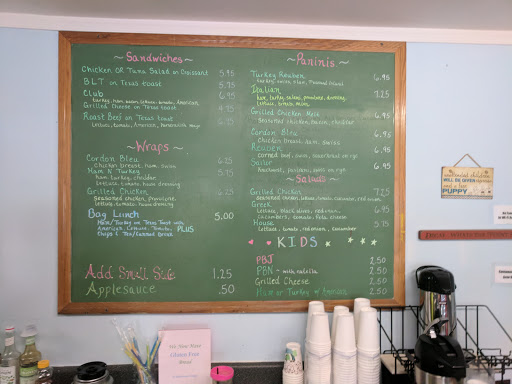 ~ Sandwiches ~
Chicken OR Tuna Salad on Croissant 5.95
BLT on Texas toast 5.75
Club 6.95
turkey, ham, bacon, lettuce, tomato, American
Grilled Cheese on Texas toast 4.95
Roast Beef on Texas toast 6.95
lettuce, tomato, American, horseradish mayo
~ Wraps ~
Cordon Bleu 6.25
chicken breast, ham, swiss
Ham N Turkey 6.15
ham, turkey, cheddar
lettuce, tomato, house dressing
Grilled Chicken 6.25
Seasoned chicken, provolone,
lettuce, tomato, house dressing
Bag Lunch 5.00
Ham/Turkey on Texas Toast with
American, Lettuce, Tomato, PLUS
Chips & Tea/Fountain Drink
Add Small Side 1.25
Applesauce .50
~ Paninis ~
Turkey Reuben 6.95
turkey, swiss, slaw, thousand island
Italian 7.25
ham, turkey, salami, provolone, dressing,
lettuce, onion, mayo
Grilled Chicken Melt 6.95
Seasoned chicken, bacon, cheddar
Cordon Bleu 6.95
Chicken breast, ham, swiss
Reuben 6.95
corned beef, swiss, sauerkraut on rye
Sailor 6.95
~ Salads ~
Grilled Chicken 7.25
Seasoned chicken, lettuce, tomato, cucumber
Greek 6.95
lettuce, black olives, red onion,
Cucumbers, tomato, feta cheese
House 5.75
lettuce, tomato, red onion, cucumber
KIDS
PBJ 2.50
PBN ~ with nutella 2.50
Grilled Cheese 2.50
Ham or Turkey w/ American 2.50
We Now Have
Gluten Free
Bread
WILL BE GIVEN
and a free
PUPPY